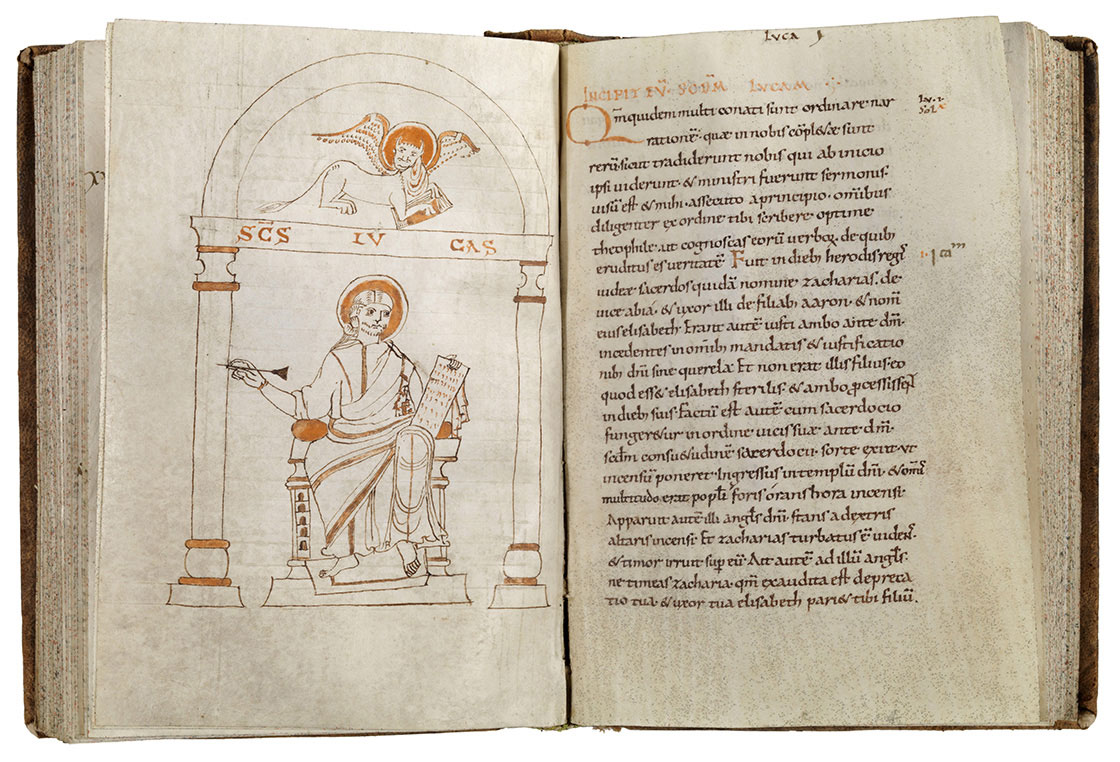 SC̄S IV CAS
LVCA
INCIPIT EV̄ LVCAM
Qm̄ quidem multi conati sunt ordinare nar
rationē · quæ in nobis cōpl&æ sunt
rerū · sicut tradiderunt nobis qui ab initio
ipsi uiderunt · & ministri fuerunt sermonis ·
uisū est & mihi · assecuto a principio · om̄ibus
diligenter ex ordine tibi scribere · optime
theophile · ut cognoscas eorū uerboꝝ · de quib;
eruditus es ueritatē · Fuit in dieb; herodis regis
iudeæ sacerdos quidā nomine zacharias · de
uice abiá · & uxor illi de filiab; aaron · & nom̄
eius elisabeth · Erant autē iusti ambo ante dm̄ ·
incedentes in om̄ib; mandatis & iustificatio
nib; dn̄i sine querela · Et non erat illis filius · eo
quod ess& elisabeth sterilis · & ambo ꝓcessissent
in dieb; suis · Factū est autē cum sacerdotio
funger&ur in ordine uicis suæ ante dm̄ ·
scdm̄ consu&udinē sacerdocii · sorte exiit · ut
incensū poneret · Ingressus in templū dn̄i · & omīs
multitudo erat popłi foris órans hora incensi ·
Apparuit autē illi angłs dn̄i · stans a dextris
altaris incensi · Et zacharias turbatus ē uidens ·
& timor irruit sup̄ eū · Ait autē ad illū angłs ·
ne timeas zacharia · qm̄ exaudita est depreca
tio tua · & uxor tua elisabeth pari& tibi filiū ·